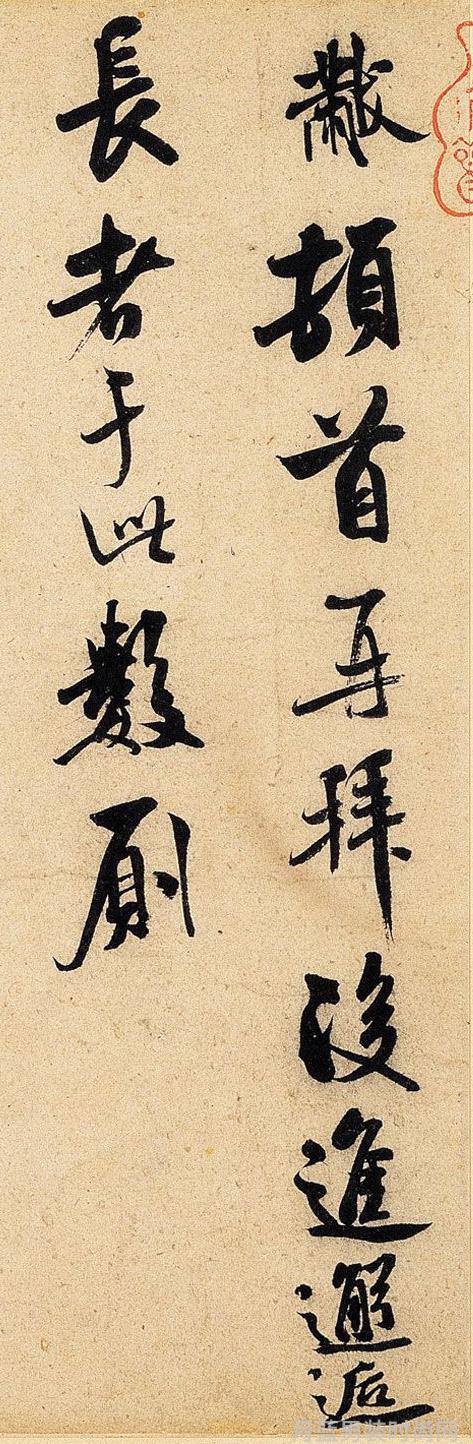 黻頓首再拜後進邂逅
長者于此數厠